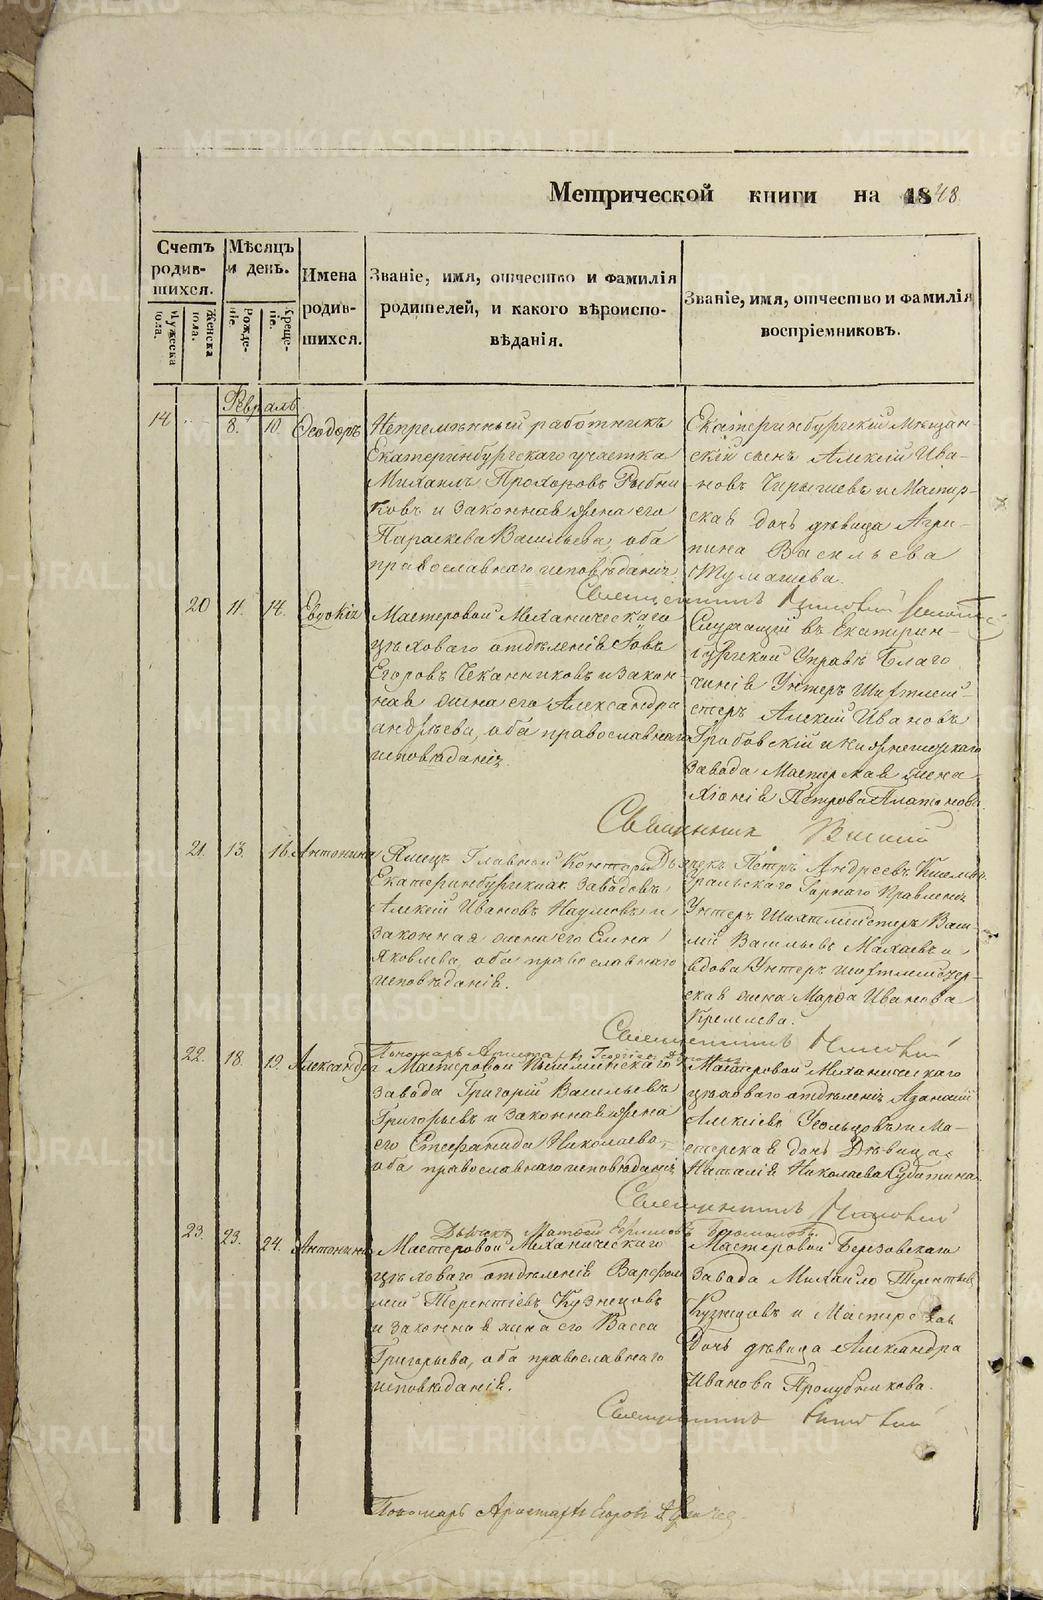 Метрической книги на 1848.
Счетъ родив-шихся.
Мужеска пола.
Женска пола.
Мѣсяцъ и день.
Рожде-ніе.
Креще-ніе.
Имена родив-шихся.
Званіе, имя, отчество и фамилія
родителей, и какого вѣроиспо-
вѣданія.
Званіе, имя, отчество и фамилія
воспріемниковъ.
Февраль
14 8. 10. Ѳеодоръ
Непремѣнный работникъ
Екатеринбургскаго участка
Михаилъ Прохоровъ Рыбни
ковъ и законная жена его
Параскева Васильева, оба
православнаго исповѣданія
Екатеринбургскій Мѣщан-
скій сынъ Алексѣй Ива-
новъ Чирышевъ и Мастер-
ская дочь дѣвица Агри-
пина Васильева
Тумашева.
Священникъ
20 11. 14. Евдокія
Мастеровой Механическаго
цѣховаго отдѣленія Іовъ
Егоровъ Чеканниковъ и закон-
ная жена его Александра
Андрѣева, оба православнаго
исповѣданія.
Служащій въ Екатерин-
бургской Управѣ Благо
чинія Унтеръ Шихтмей-
стеръ Алексѣй Ивановъ
Грабовскій и
завода Мастерская жена
Хіонія Петрова Платонова.
Священникъ
21. 13. 16. Антонина
Писецъ Главной Конторы
Екатеринбургскихъ заводовъ
Алексѣй Ивановъ Наумовъ и
законная жена его Елена
Яковлева, оба православнаго
исповѣданія.
Дьячекъ Петръ Андреевъ
Уральскаго Горнаго Правленія
Унтеръ Шихтмейстеръ Васи-
лій Васильевъ и
вдова Унтеръ шихтмейстер-
ская жена Марѳа Иванова
Кремлева.
Священникъ
22. 18. 19. Александръ
Пономарь
Мастеровой Пышминскаго
завода Григорій Васильевъ
Григорьевъ и законная жена
его Стефанида Николаева,
оба православнаго исповѣданія
Мастеровой Механическаго
цѣховаго отдѣленія Аѳанасій
Алексѣевъ Усольцовъ и Ма-
стерская дочь Дѣвица
Наталія Николаева
Священникъ
23. 23. 24. Антонина
Дьячекъ Матѳей
Мастеровой Механическаго
цѣховаго отдѣленія Варѳоло
мей Терентіевъ Кузнецовъ
и законная жена его Васса
Григорьева, оба православнаго
исповѣданія.
Мастеровой Березовскаго
завода Михайло Терентьевъ
Кузнецовъ и Мастерская
Дочь дѣвица Александра
Иванова Пролубникова.
Священникъ
Пономарь Аристархъ Егоровъ
METRIKI.GASO-URAL.RU